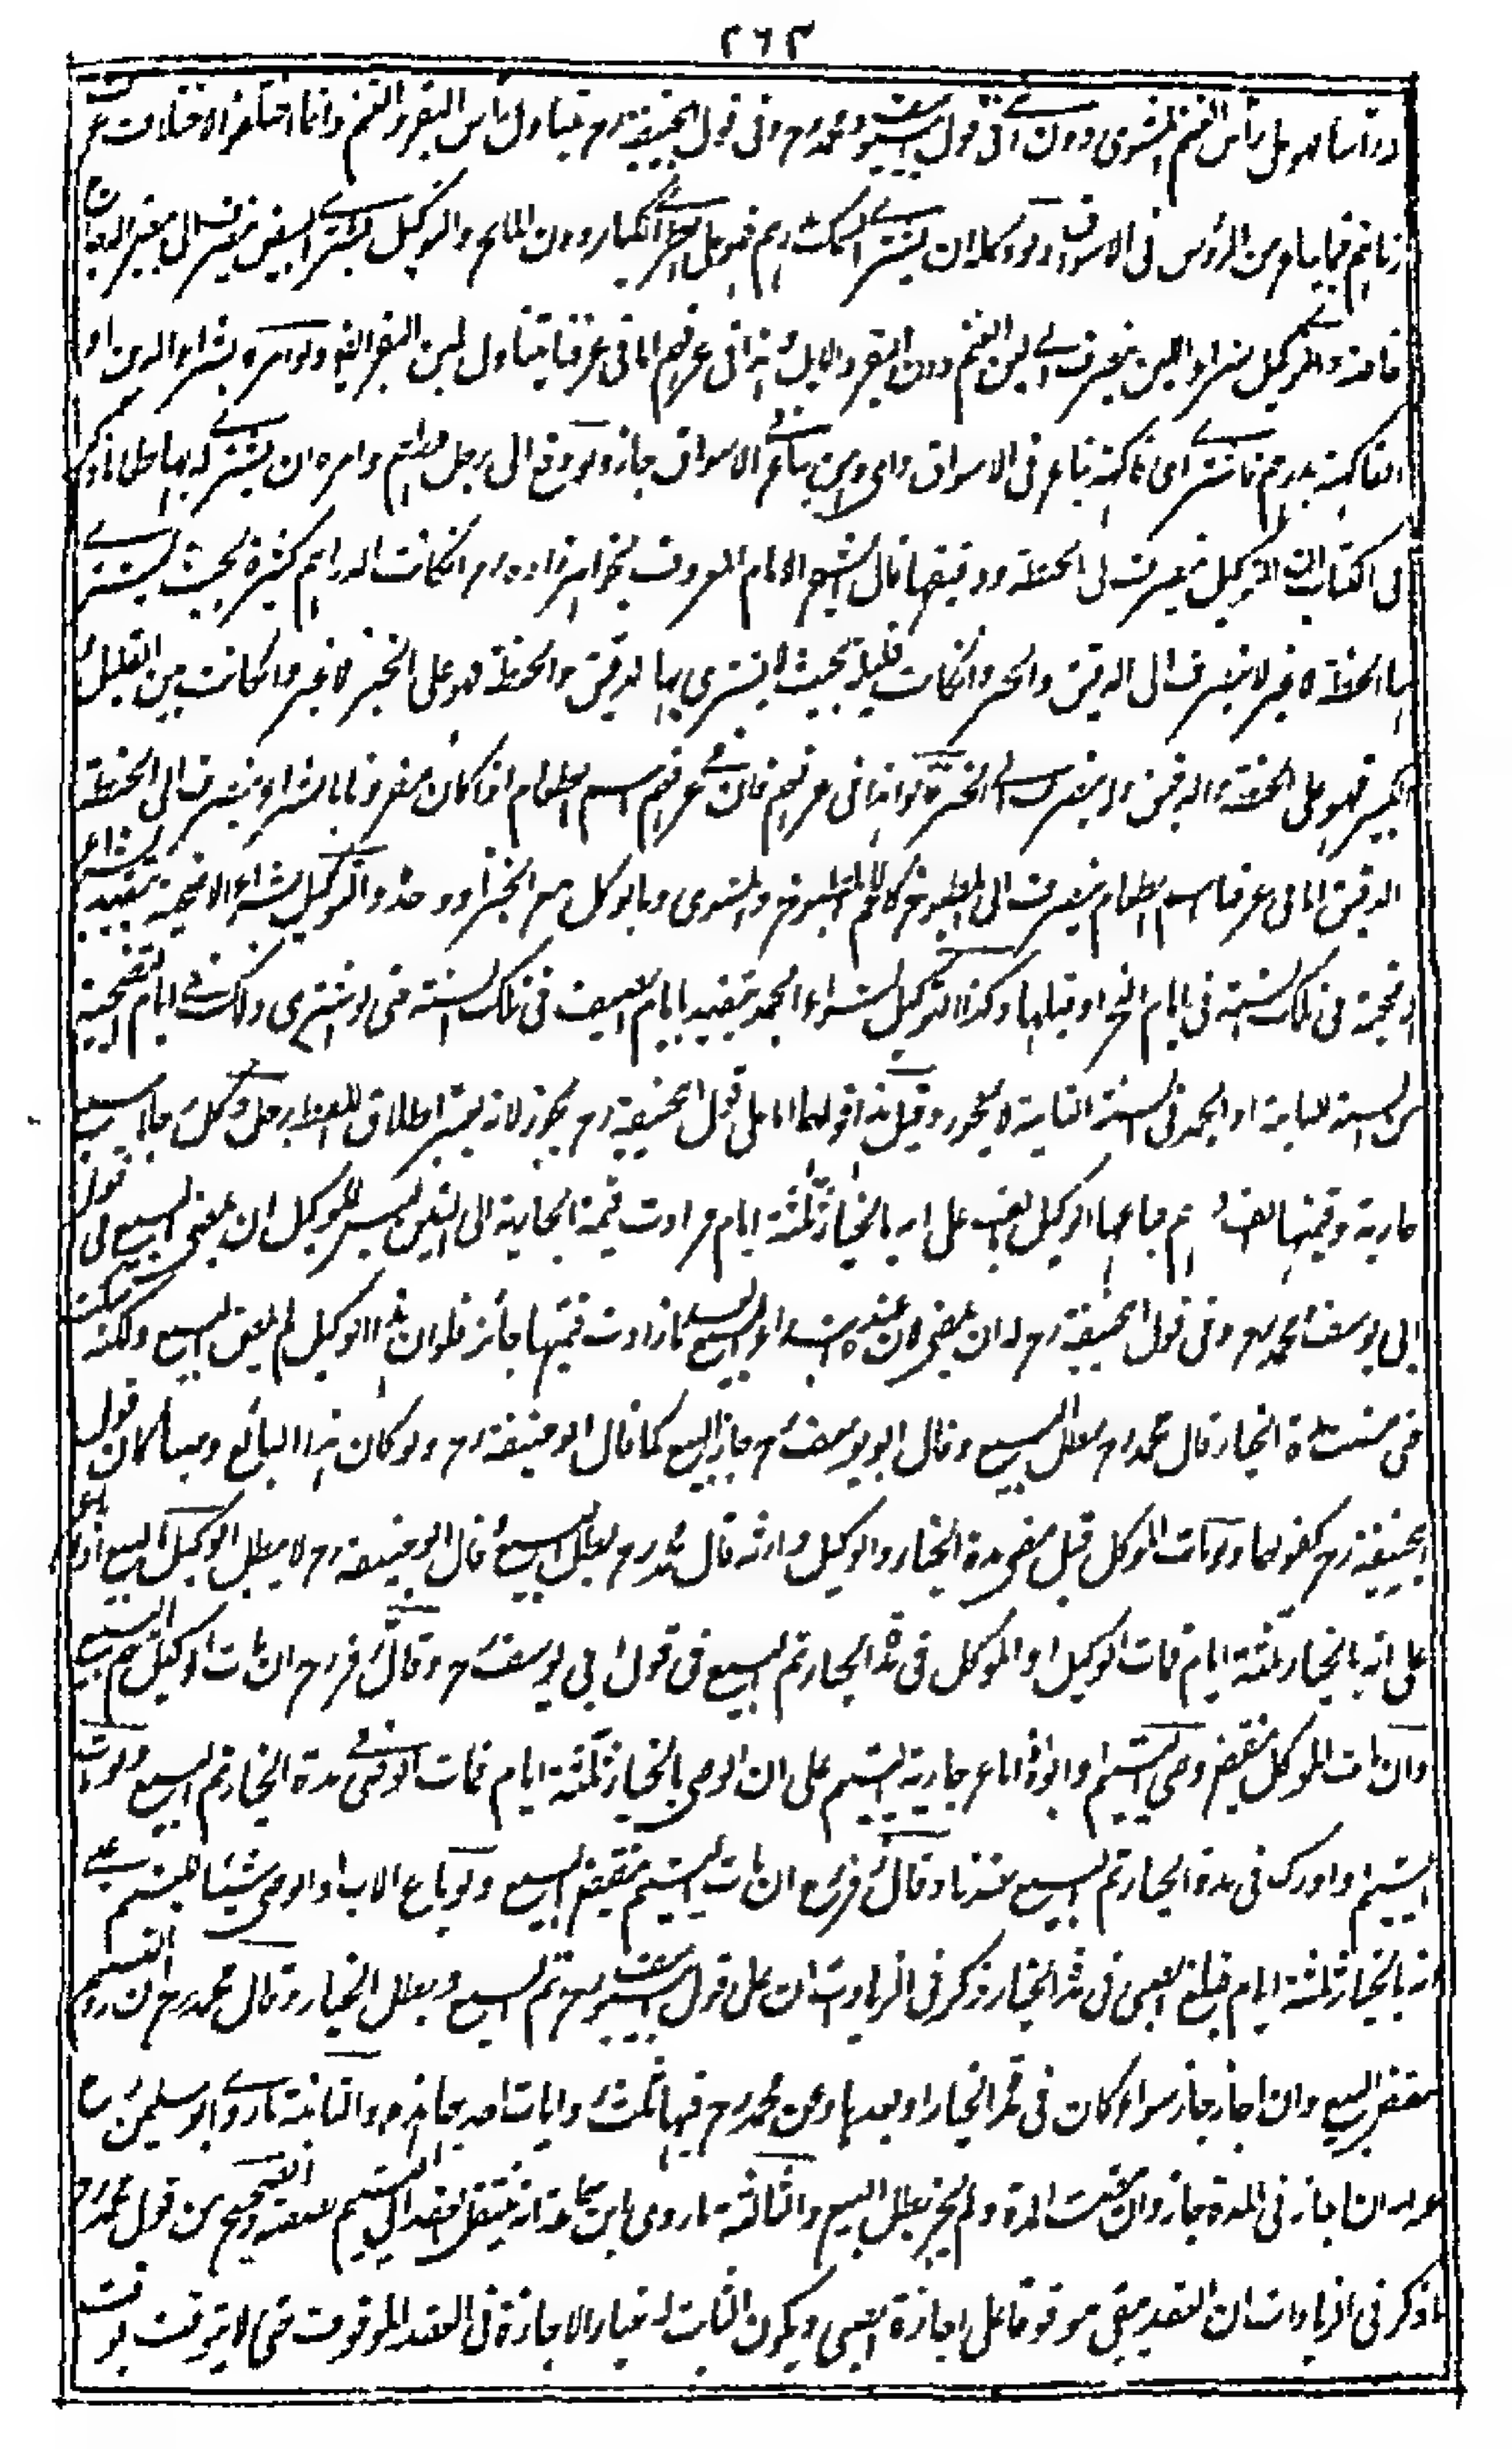 ٢٦٣
رأس الغنم المشوى دون النى فى قول ابى يوسف ومحمد رح وفى قول ابيحنيفة رح يتناول رأس البقر والغنم وانما اختلفوا لاختلاف
فيما يباع من الرؤس فى الاسواق ولو وكله ان يشترى السمك بدرهم فهو على الطرى الكبار دون المالح والتوكيل بشراء البيض ينصرف الى بيض الدجاج
والتوكيل بشراء اللبن ينصرف الى لبن الغنم دون البقر والابل هذا فى عرفهم اما فى عرفنا يتناول لبن البقر ايضا ولو امره بشراء الدهن او
الفاكهة بدرهم فاشترى اى فاكهة تباع فى الاسواق واى دهن يباع فى الاسواق جاز ولو دفع الى رجل دراهم وامره ان يشترى له بها طعاما ذكر
فى الكتاب ان التوكيل ينصرف الى الحنطة ودقيقها قال الشيخ الامام المعروف بخواهرزاده رح ان كانت الدراهم كثيرة بحيث يشترى
بها الحنطة لا غير لا ينصرف الى الدقيق والخبز وان كانت قليلة بحيث لا يشترى بها الدقيق والحنطة فهو على الخبز لا غير وان كانت بين القليل و
الكثير فهو على الحنطة والدقيق ولا ينصرف الى الخبز قالوا هذا فى عرفهم فان فى عرفهم اسم الطعام اذا كان مقرونا بالشراء ينصرف الى الحنطة و
الدقيق اما فى عرفنا اسم الطعام ينصرف الى المطبوخ كاللحم المطبوخ والمشوى وما يوكل مع الخبز او وحده والتوكيل بشراء الاضحية يتقيد بشراء
الاضحية فى تلك السنة فى ايام النحر او قبلها وكذا التوكيل بشراء الجمد يتقيد بايام الصيف فى تلك السنة حتى لو اشترى ذلك فى ايام التضحية
من السنة الثانية او الجمد فى السنة الثانية لا يجوز وقيل هذا قولهما اما على قول ابيحنيفة رح يجوز لانه يعتبر اطلاق اللفظ رجل وكل رجلا ببيع
جارية وقيمتها الف درهم فباعها الوكيل بالف على انه بالخيار ثلثة ايام فزادت قيمة الجارية الى الفين ليس للوكيل ان يمضى البيع فى قول
ابى يوسف ومحمد رح وفى قول ابيحنيفة رح له ان يمضى لان عنده ابتداء البيع بعد ما زادت قيمتها جائز فلو ان هذا الوكيل لم يمض البيع ولكنه سكت
حتى مضت مدة الخيار قال محمد رح بطل البيع وقال ابو يوسف رح جاز البيع كما قال ابو حنيفة رح ولو كان هذا البائع وصيا كان قول
ابيحنيفة رح كقولهما ولو مات الموكل قبل مضى مدة الخيار والوكيل وارثه قال محمد رح بطل البيع وقال ابو حنيفة رح لا يبطل الوكيل بالبيع اذا باع
على انه بالخيار ثلثة ايام فمات الوكيل او الموكل فى مدة الخيار تم البيع فى قول ابى يوسف رح وقال زفر رح ان مات الوكيل تم البيع
وان مات الموكل ينتقض وصى اليتيم وابوه اذا باع جارية اليتيم على ان الوصى بالخيار ثلثة ايام فمات الوصى فى مدة الخيار تم البيع ولو مات
اليتيم او ادرك فى مدة الخيار تم البيع عندنا وقال زفر رح ان مات اليتيم ينتقض البيع ولو باع الاب او الوصى شيئا لليتيم على
انه بالخيار ثلثة ايام فبلغ الصبى فى مدة الخيار ذكر فى الزيادات ان على قول ابى يوسف رح تم البيع وبطل الخيار وقال محمد رح ان رد اليتيم
ينتقض البيع وان اجاز جاز سواء كان فى مدة الخيار او بعدها وعن محمد رح فيها ثلث روايات احدها هذه والثانية ما روى ابو سليمن رح
عنه ان اجاز فى المدة جاز وان مضت المدة ولم يجز بطل البيع والثالثة ما روى ابن سماعة انه ينتقل العقد الى اليتيم بصفته والصحيح من قول محمد رح
ما ذكر فى الزيادات ان العقد يبقى موقوفا على اجازة الصبى ويكون الثابت له خيار الاجازة فى العقد الموقوف حتى لا يتوقت بوقت